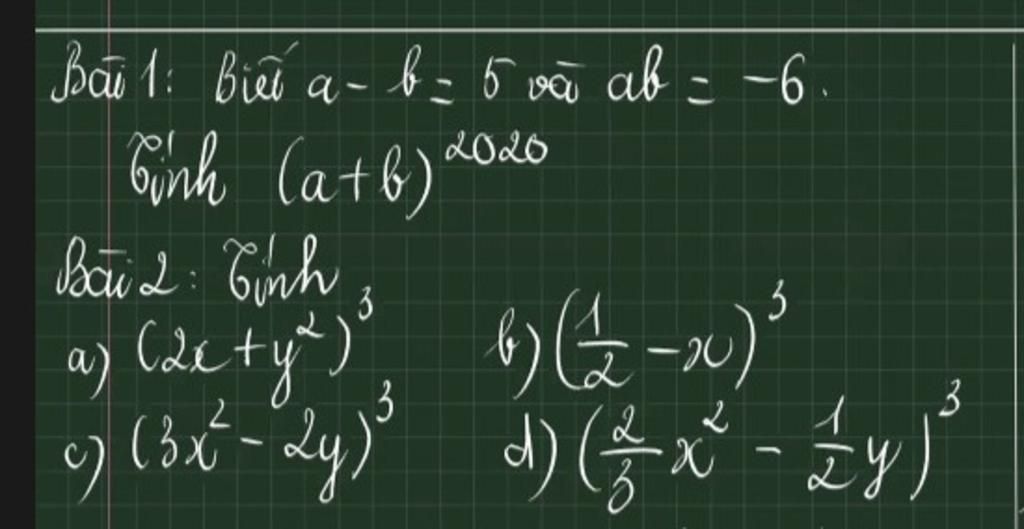 Bài 1: Biết a - b = 5 và ab = -6.
Tính (a+b)^2020
Bài 2: Tính
a) (2x + y^2)^3 b) (1/2 - x)^3
c) (3x^2 - 2y)^3 d) (2/3 x^2 - 1/2 y)^3